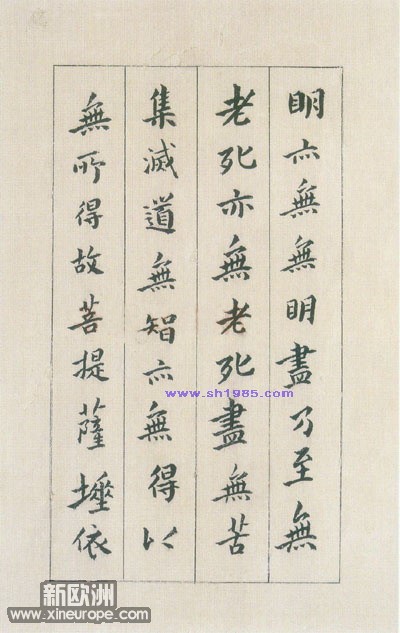 明亦無無明盡乃至無
老死亦無老死盡無苦
集滅道無智亦無得以
無所得故菩提薩埵依
www.sh1985.com
新欧洲
www.xineurope.com